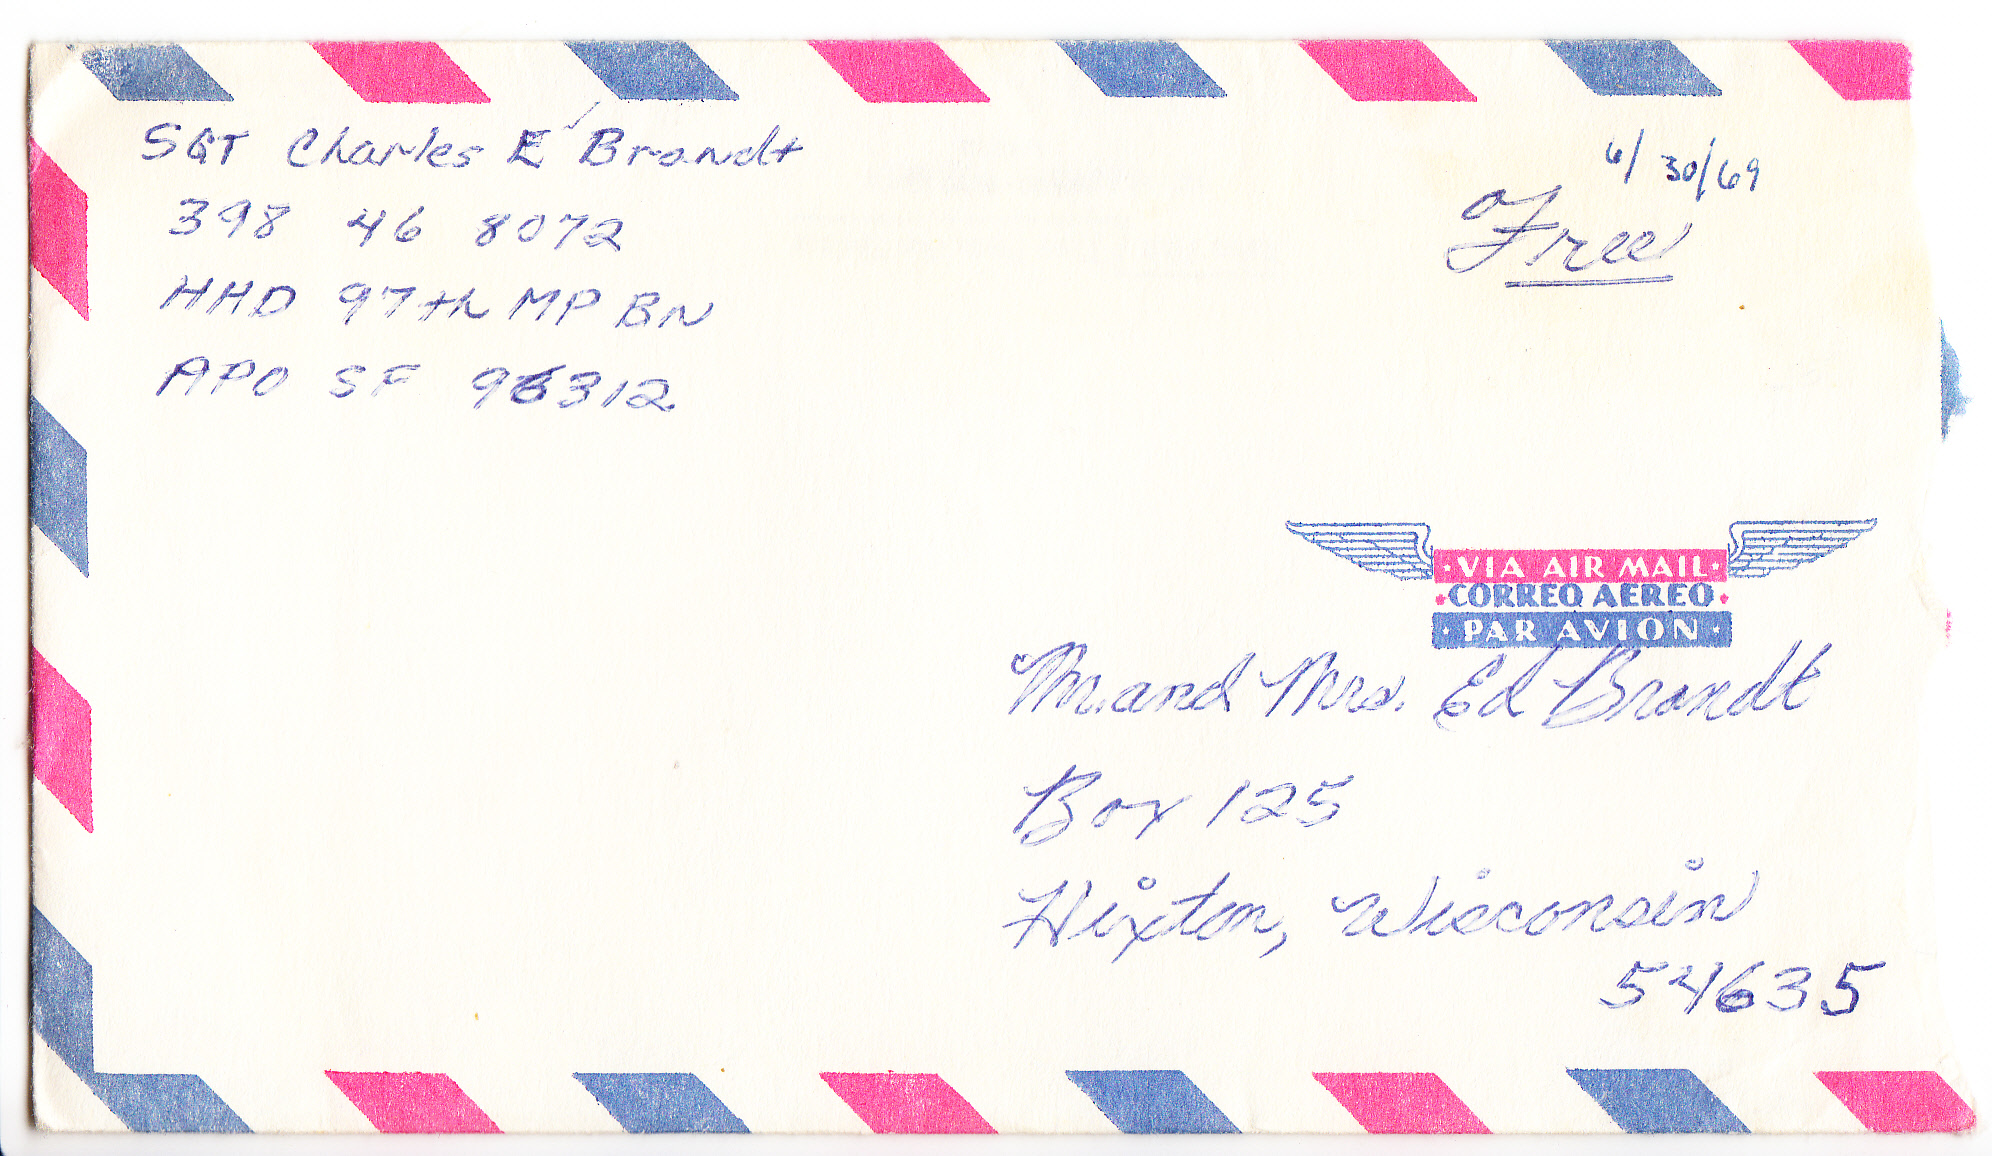 SGT Charles E Brandt
398 46 8072
HHD 97th MP BN
APO SF 96312
6/30/69
Free
·VIA AIR MAIL·
·CORREO AEREO·
·PAR AVION·
Mr. and Mrs. Ed Brandt
Box 125
Hixton, Wisconsin
54635